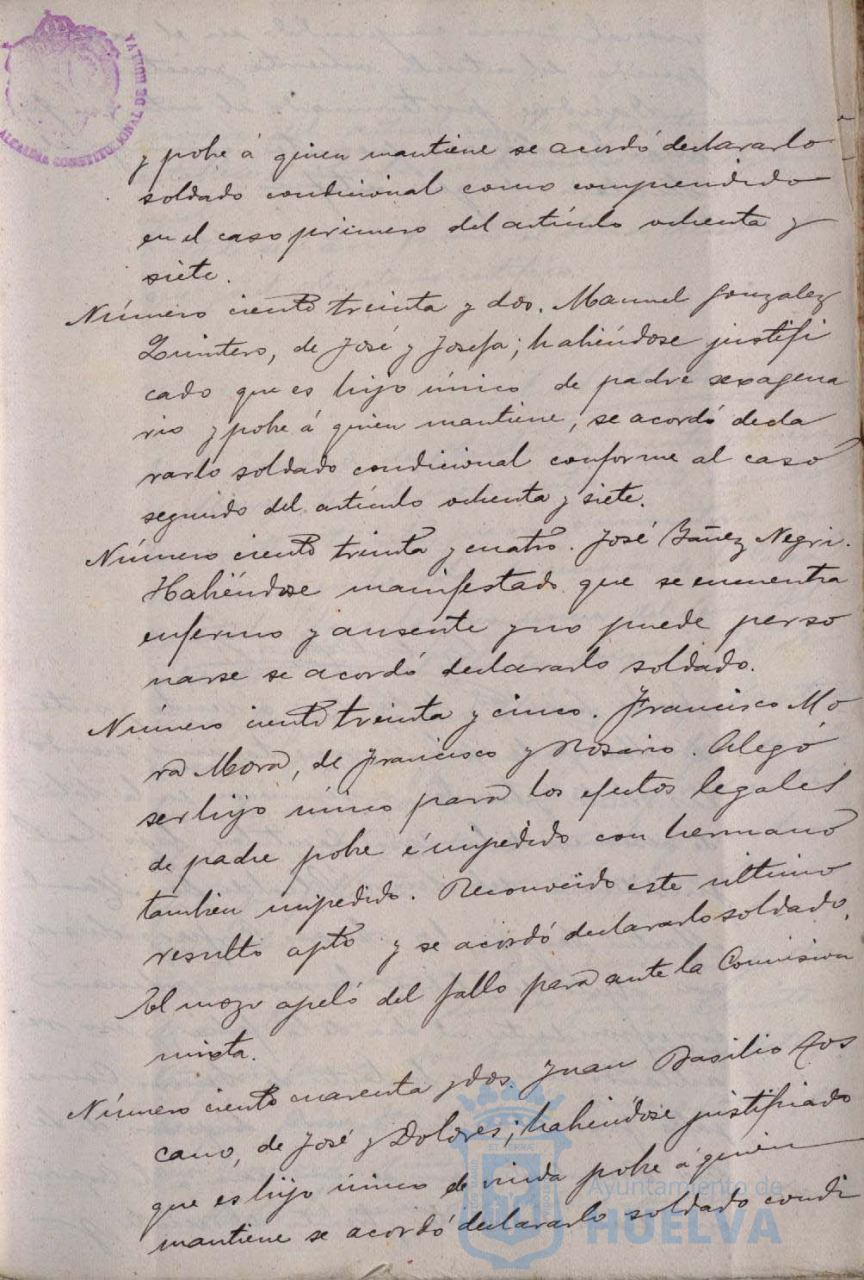 ALCALDIA CONSTITUCIONAL DE HUELVA
y pobre á quien mantiene se acordó declararlo
soldado condicional como comprendido
en el caso primero del artículo ochenta y
siete.
Número ciento treinta y dos. Manuel Gonzalez
Quintero, de José y Josefa; habiéndose justifi
cado que es hijo único de padre sexagena
rio y pobre á quien mantiene, se acordó decla
rarlo soldado condicional conforme al caso
segundo del artículo ochenta y siete.
Número ciento treinta y cuatro. José Báñez Negri.
Habiéndose manifestado que se encuentra
enfermo y ausente y no puede perso
narse se acordó declararlo soldado.
Número ciento treinta y cinco. Francisco Mo
ra Mora, de Francisco y Rosario. Alegó
ser hijo único para los efectos legales
de padre pobre é impedido con hermano
tambien impedido. Reconocido este ultimo
resultó apto y se acordó declararlo soldado.
El mozo apeló del fallo para ante la Comision
mixta.
Número ciento cuarenta y dos. Juan Basilio Tos
cano, de José y Dolores; habiéndose justificado
que es hijo único de viuda pobre á quien
mantiene se acordó declararlo soldado condi
Ayuntamiento de
HUELVA